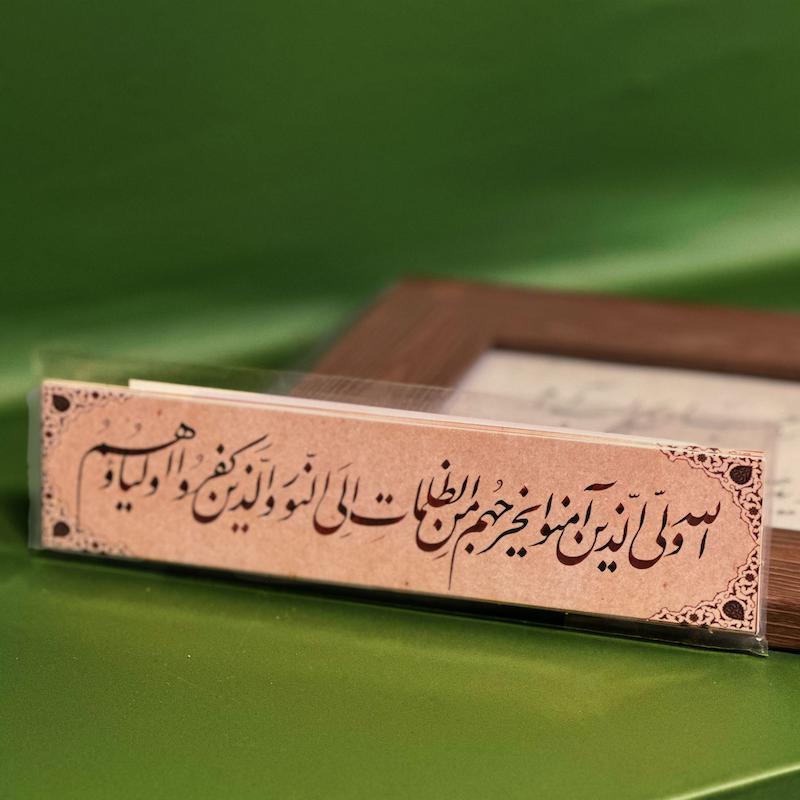 الله ولّی الّذین آمنوا یخرجهُم مِن الظلمات اِلَی النّوَر وَالّذین کفرُوا اولیاؤهُم